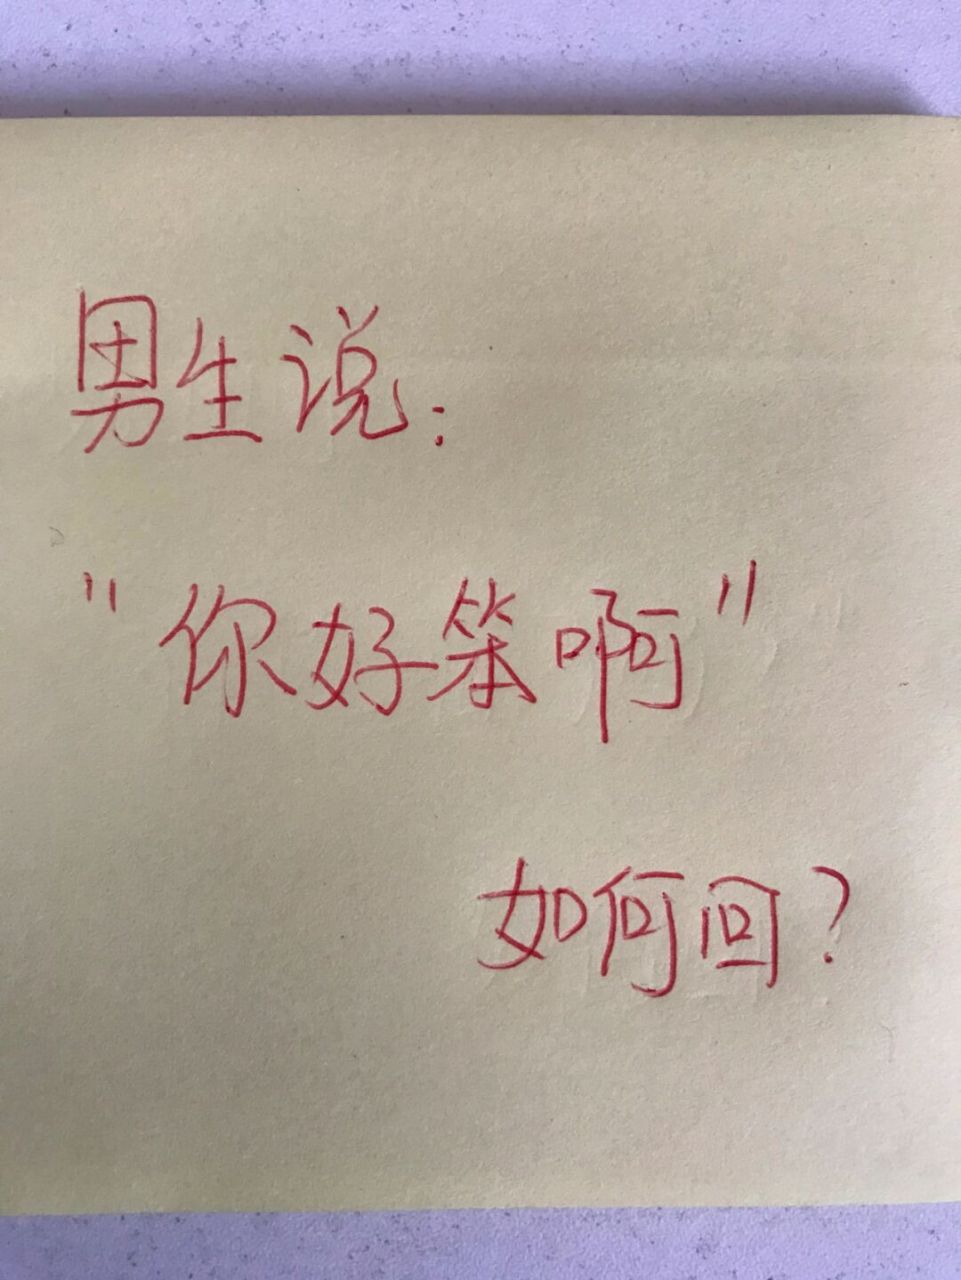 男生说：
"你好笨啊"
如何回？